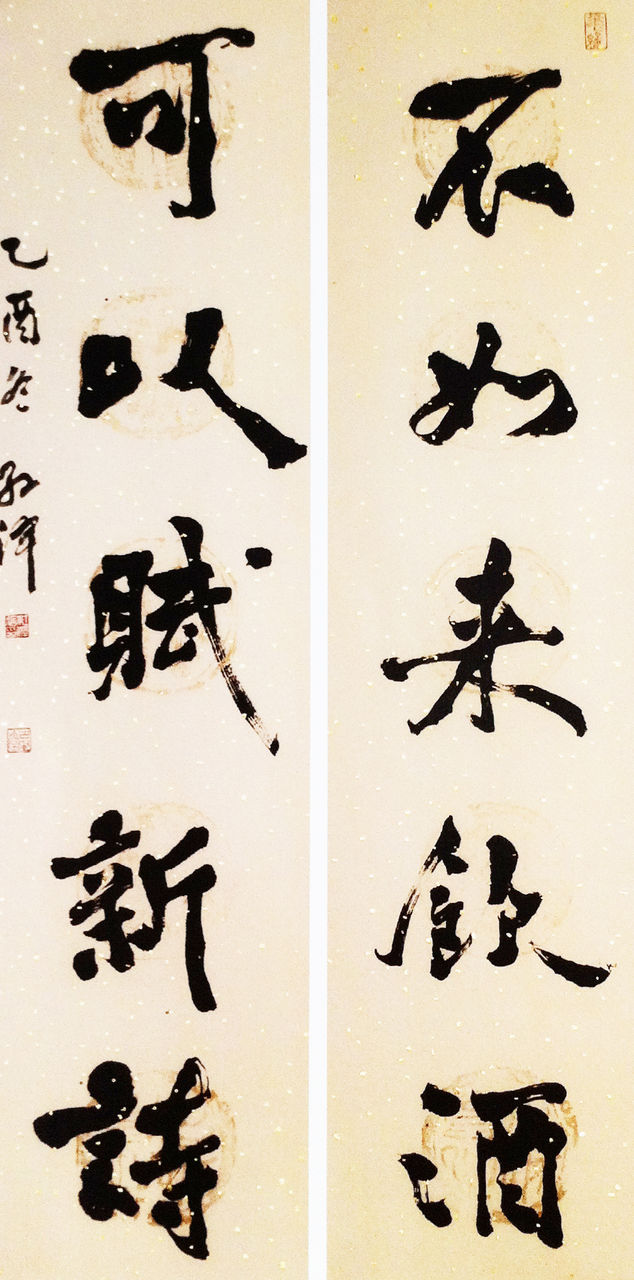 不如来飲酒
可以賦新詩
乙酉冬